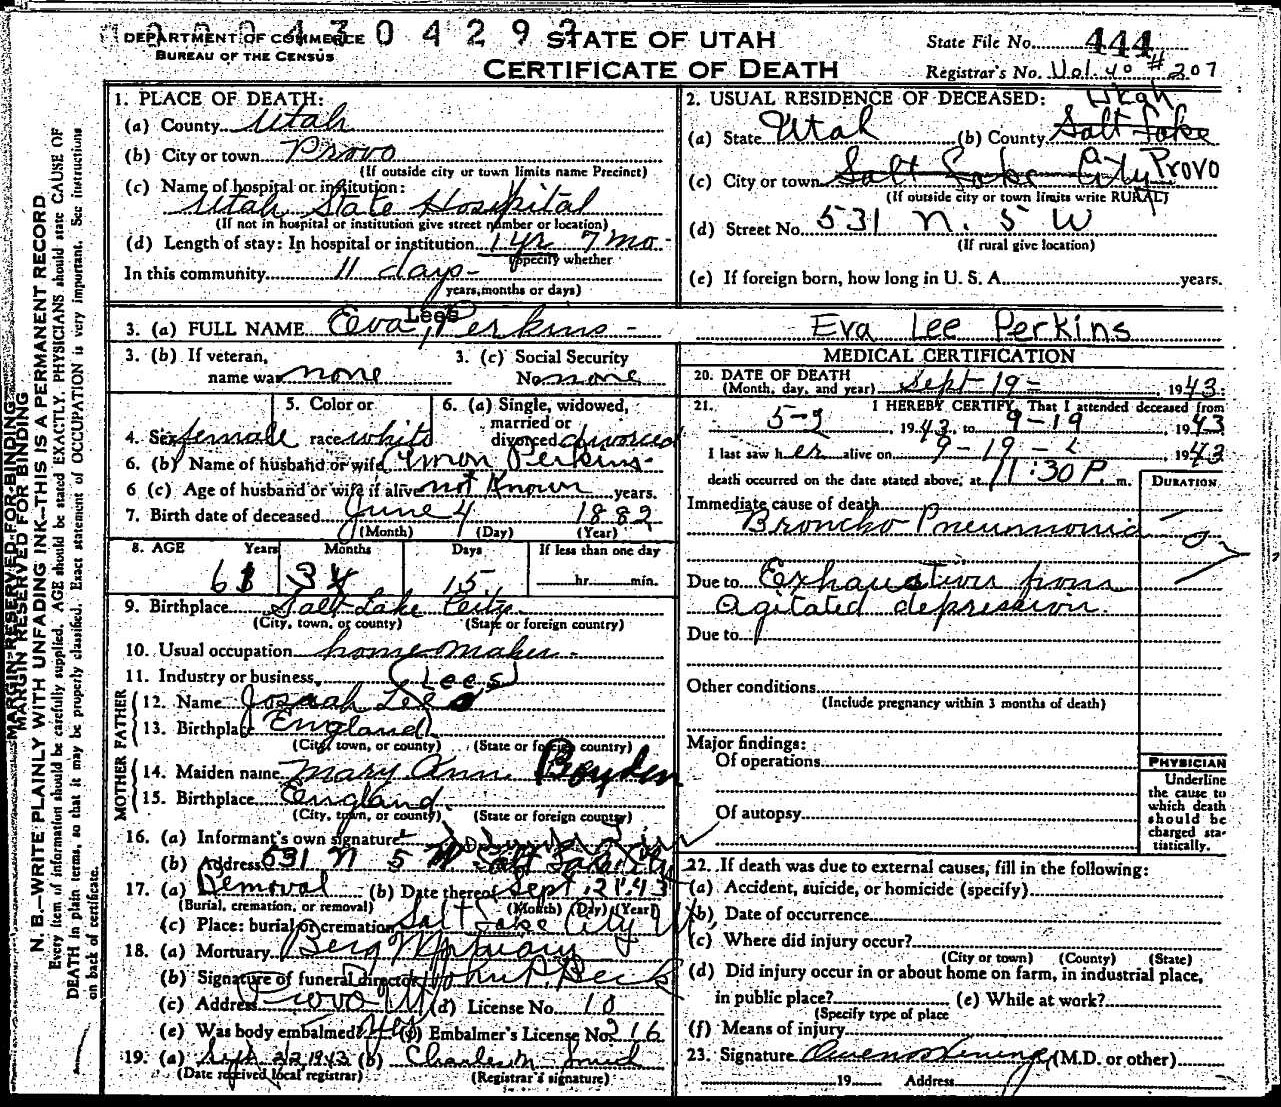 0004304293
DEPARTMENT OF COMMERCE
BUREAU OF THE CENSUS
STATE OF UTAH
CERTIFICATE OF DEATH
State File No. 444
Registrar's No. Vol. 40 # 207
MARGIN RESERVED FOR BINDING
MARGIN RESERVED FOR BINDING
N. B.—WRITE PLAINLY WITH UNFADING INK—THIS IS A PERMANENT RECORD
Every item of information should be carefully supplied. AGE should be stated EXACTLY. PHYSICIANS should state CAUSE OF
DEATH in plain terms, so that it may be properly classified. Exact statement of OCCUPATION is very important. See instructions
on back of certificate.
1. PLACE OF DEATH:
(a) County Utah
(b) City or town Provo
(If outside city or town limits name Precinct)
(c) Name of hospital or institution:
Utah State Hospital
(If not in hospital or institution give street number or location)
(d) Length of stay: In hospital or institution 1 yr 7 mo -
(Specify whether
In this community 11 days -
years, months or days)
2. USUAL RESIDENCE OF DECEASED:
Utah
(a) State Utah (b) County Salt Lake
(c) City or town Salt Lake City Provo
(If outside city or town limits write RURAL)
(d) Street No. 531 N. 5 W
(If rural give location)
(e) If foreign born, how long in U. S. A. years.
3. (a) FULL NAME Eva Lees Perkins - Eva Lee Perkins
3. (b) If veteran,
name war none
3. (c) Social Security
No none
4. Sex female
5. Color or
race white
6. (a) Single, widowed,
married or
divorced divorced
6. (b) Name of husband or wife Amon Perkins
6 (c) Age of husband or wife if alive not Known years.
7. Birth date of deceased June 4 1882
(Month) (Day) (Year)
8. AGE Years Months Days If less than one day
61 3 15 hr. min.
9. Birthplace Salt Lake City
(City, town, or county) (State or foreign country)
10. Usual occupation home maker -
11. Industry or business
(Lees)
FATHER
12. Name Josiah Lee
13. Birthplace England
(City, town, or county) (State or foreign country)
MOTHER
14. Maiden name Mary Ann Boyden
15. Birthplace England
(City, town, or county) (State or foreign country)
16. (a) Informant's own signature
(b) Address 531 N 5 W Salt Lake City
17. (a) Removal (b) Date thereof Sept. 21 43
(Burial, cremation, or removal) (Month) (Day) (Year)
(c) Place: burial or cremation Salt Lake City Ut,
18. (a) Mortuary Berg Mortuary
(b) Signature of funeral director John P. Beck
(c) Address Provo Ut (d) License No. 10
(e) Was body embalmed? Yes (f) Embalmer's License No. 216
19. (a) Sept 22 1943 (b)
(Date received local registrar) (Registrar's signature)
MEDICAL CERTIFICATION
20. DATE OF DEATH
(Month, day, and year) Sept - 19 - , 1943
21. I HEREBY CERTIFY, That I attended deceased from
5-9, 1943, to 9-19, 1943
I last saw her alive on 9-19-, 1943
death occurred on the date stated above, at 11:30 P. m.
DURATION
Immediate cause of death
Broncho Pneumonia
Due to Exhaustion from
agitated depression.
Due to
Other conditions
(Include pregnancy within 3 months of death)
Major findings:
Of operations
Of autopsy
PHYSICIAN
Underline
the cause to
which death
should be
charged sta-
tistically.
22. If death was due to external causes, fill in the following:
(a) Accident, suicide, or homicide (specify)
(b) Date of occurrence
(c) Where did injury occur?
(City or town) (County) (State)
(d) Did injury occur in or about home on farm, in industrial place,
in public place? (e) While at work?
(Specify type of place
(f) Means of injury
23. Signature (M.D. or other)
19 Address